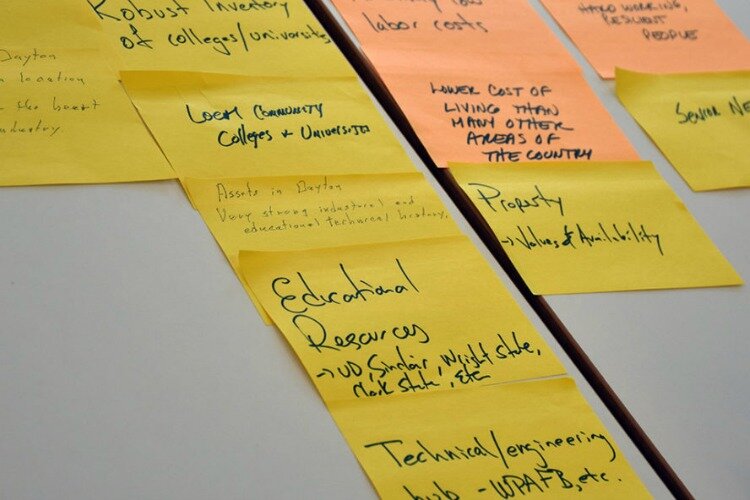 Dayton
location
the heart
industry.
Robust Inventory
of colleges/universities
Local Community
Colleges & Universities
Assets in Dayton
Very strong industrial and
educational technical history.
Educational
Resources
→ UD, Sinclair, Wright State,
Clark State, Etc
Technical/engineering
hub - WPAFB, etc.
low
labor costs
LOWER COST OF
LIVING THAN
MANY OTHER
AREAS OF
THE COUNTRY
Property
→ Values & Availability
HARD WORKING,
RESILIENT
PEOPLE
SENIOR